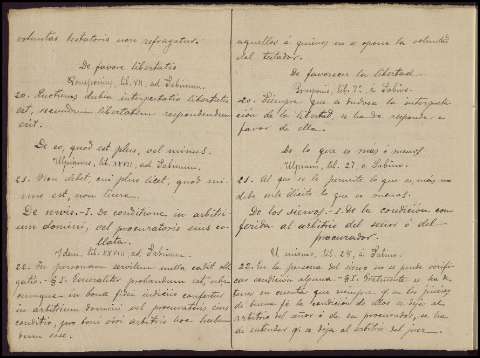 voluntas testatoris non refragatur.
De favore libertatis
Pomponius, lib. VII, ad Sabinum.
20. Quotiens dubia interpretatio libertatis
est, secundum libertatem respondendum
erit.
De eo, quod est plus, vel minus.
Ulpianus, lib. XXVII, ad Sabinum.
21. Non debet, cui plus licet, quod mi-
nus est, non licere.
De servis.- I. De conditione in arbitri-
um domini, vel procuratoris eius co-
llata.
Idem, lib. XXVIII, ad Sabinum.
22. In personam servilem nulla cadit obli-
gatio. - §I. Generaliter probandum est, ubi-
cumque in bona fidei iudiciis confertur
in arbitrium domini vel procuratoris eius
conditio, pro boni viri arbitrio hoc haben-
dum esse.
aquellos á quienes no se opone la voluntad
del testador.
De favorecer la libertad.
Pomponio, lib. 7º, á Sabino.
20. Siempre que es dudosa la interpreta-
ción de la libertad se ha de responder á
favor de ella.
De lo que es mas ó menos.
Ulpiano, lib. 27, á Sabino.
21. Al que se le permite lo que es mas, no
debe serle ilícito lo que es menos.
De los siervos.- I. De la condición con-
ferida al arbitrio del señor ó del
procurador.
El mismo, lib. 28, á Sabino.
22. En la persona del siervo no se puede verifi-
car condición alguna. - §I. Generalmente se ha de
tener en cuenta que siempre que en los juicios
de buena fé la condición de ellos se deja al
arbitrio del señor ó de su procurador, se ha
de entender que se deja al arbitrio del juez.